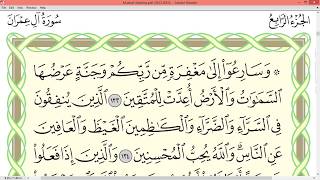 الجزء الرابع
سورة آل عمران
۞ وَسَارِعُوٓا۟ إِلَىٰ مَغْفِرَةٍ مِّن رَّبِّكُمْ وَجَنَّةٍ عَرْضُهَا
ٱلسَّمَـٰوَٰتُ وَٱلْأَرْضُ أُعِدَّتْ لِلْمُتَّقِينَ ١٣٣ ٱلَّذِينَ يُنفِقُونَ
فِى ٱلسَّرَّآءِ وَٱلضَّرَّآءِ وَٱلْكَـٰظِمِينَ ٱلْغَيْظَ وَٱلْعَافِينَ
عَنِ ٱلنَّاسِ ۗ وَٱللَّهُ يُحِبُّ ٱلْمُحْسِنِينَ ١٣٤ وَٱلَّذِينَ إِذَا فَعَلُوا۟